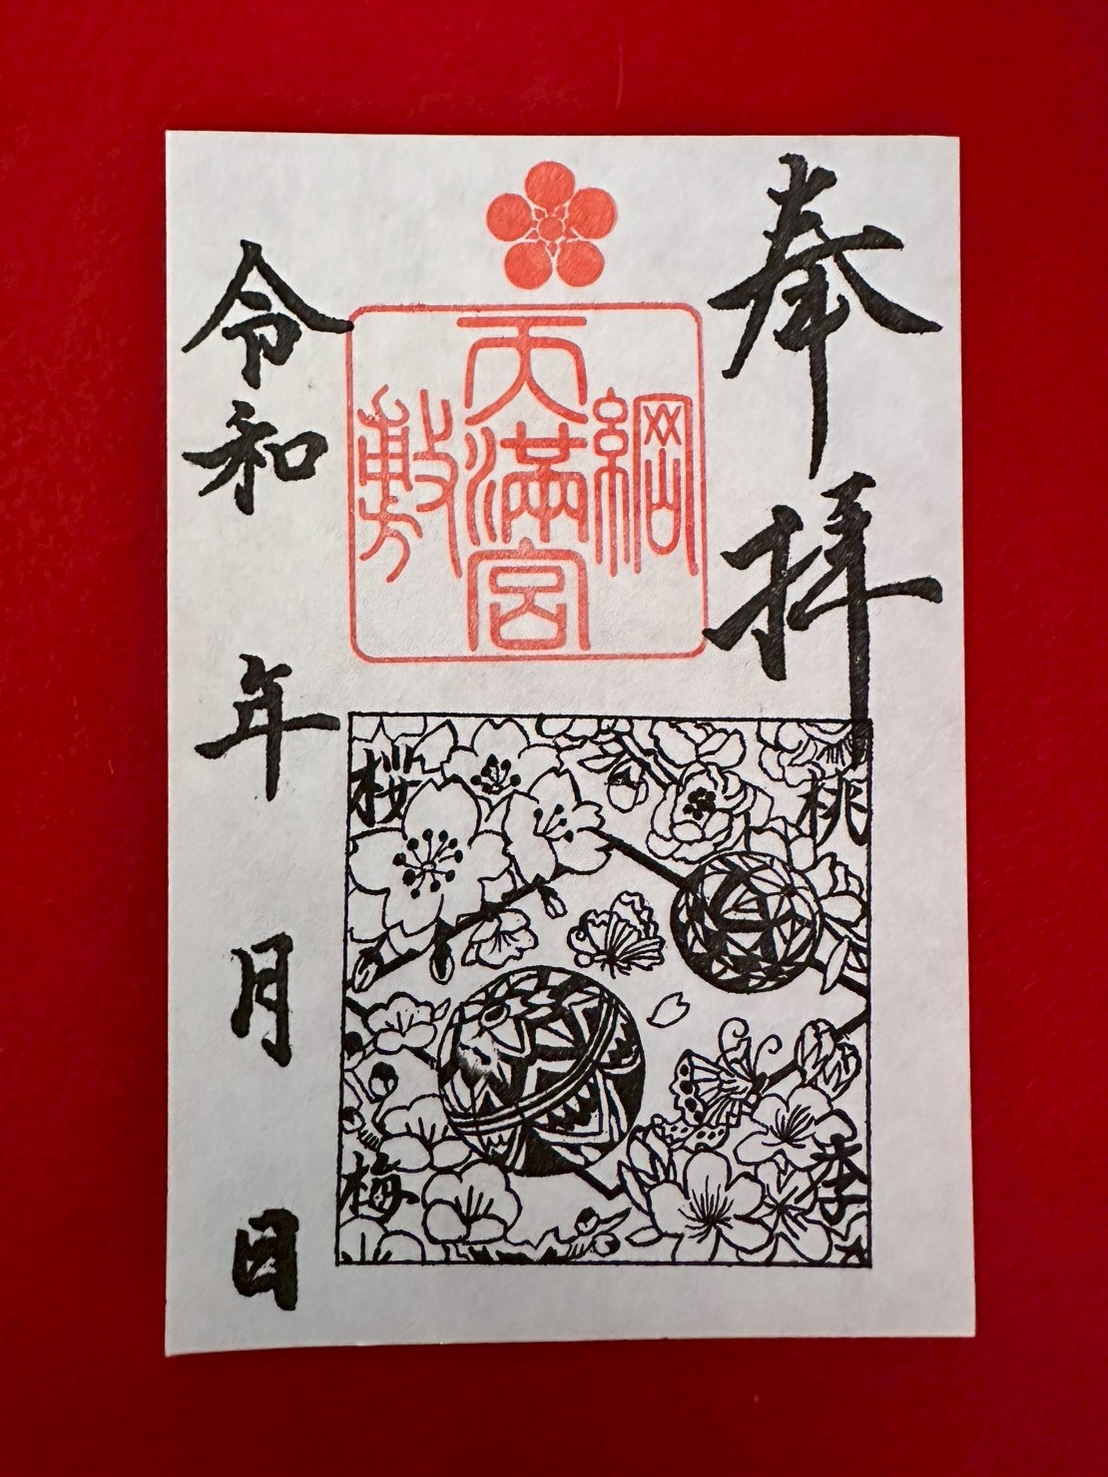 奉拝
綱
天満宮
敷
令和 年 月 日
桃
桜
李
梅